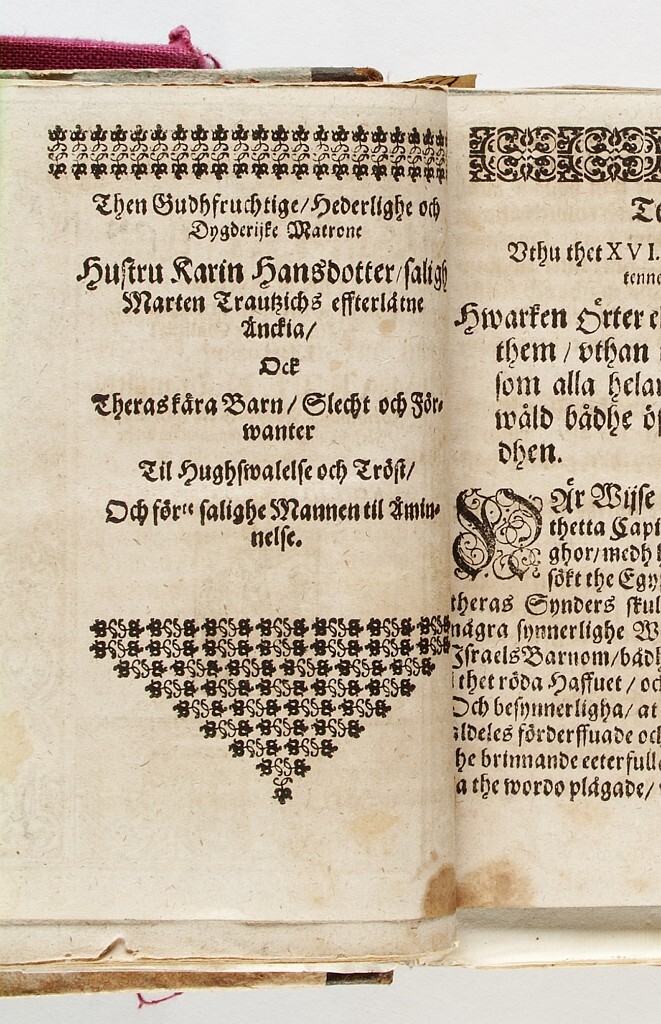 Then Gudhfruchtige/Hederlighe och
Dygderijke Matrone
Hustru Karin Hansdotter/saligh
Marten Trautzichs effterlåtne
Änckia/
Ock
Theras kära Barn/ Slecht och För-
wanter
Til Hughswalelse och Tröst/
Och förᵗᵉ salighe Mannen til Åmin-
nelse.
Te
Vthu thet XVI.
tenne
Hwarken Örter el
them / vthan
som alla hela
wåld bådhe öf
dhen.
När Wijse
thetta Capi
ghor/ medh h
sökt the Egy
theras Synders skul
några synnerlighe W
Israels Barnom/ bådh
thet röda Haffuet / oc
Och besynnerligha/ at
aldeles förderffuade och
he brinnande eeterfull
a the wordo plågade/